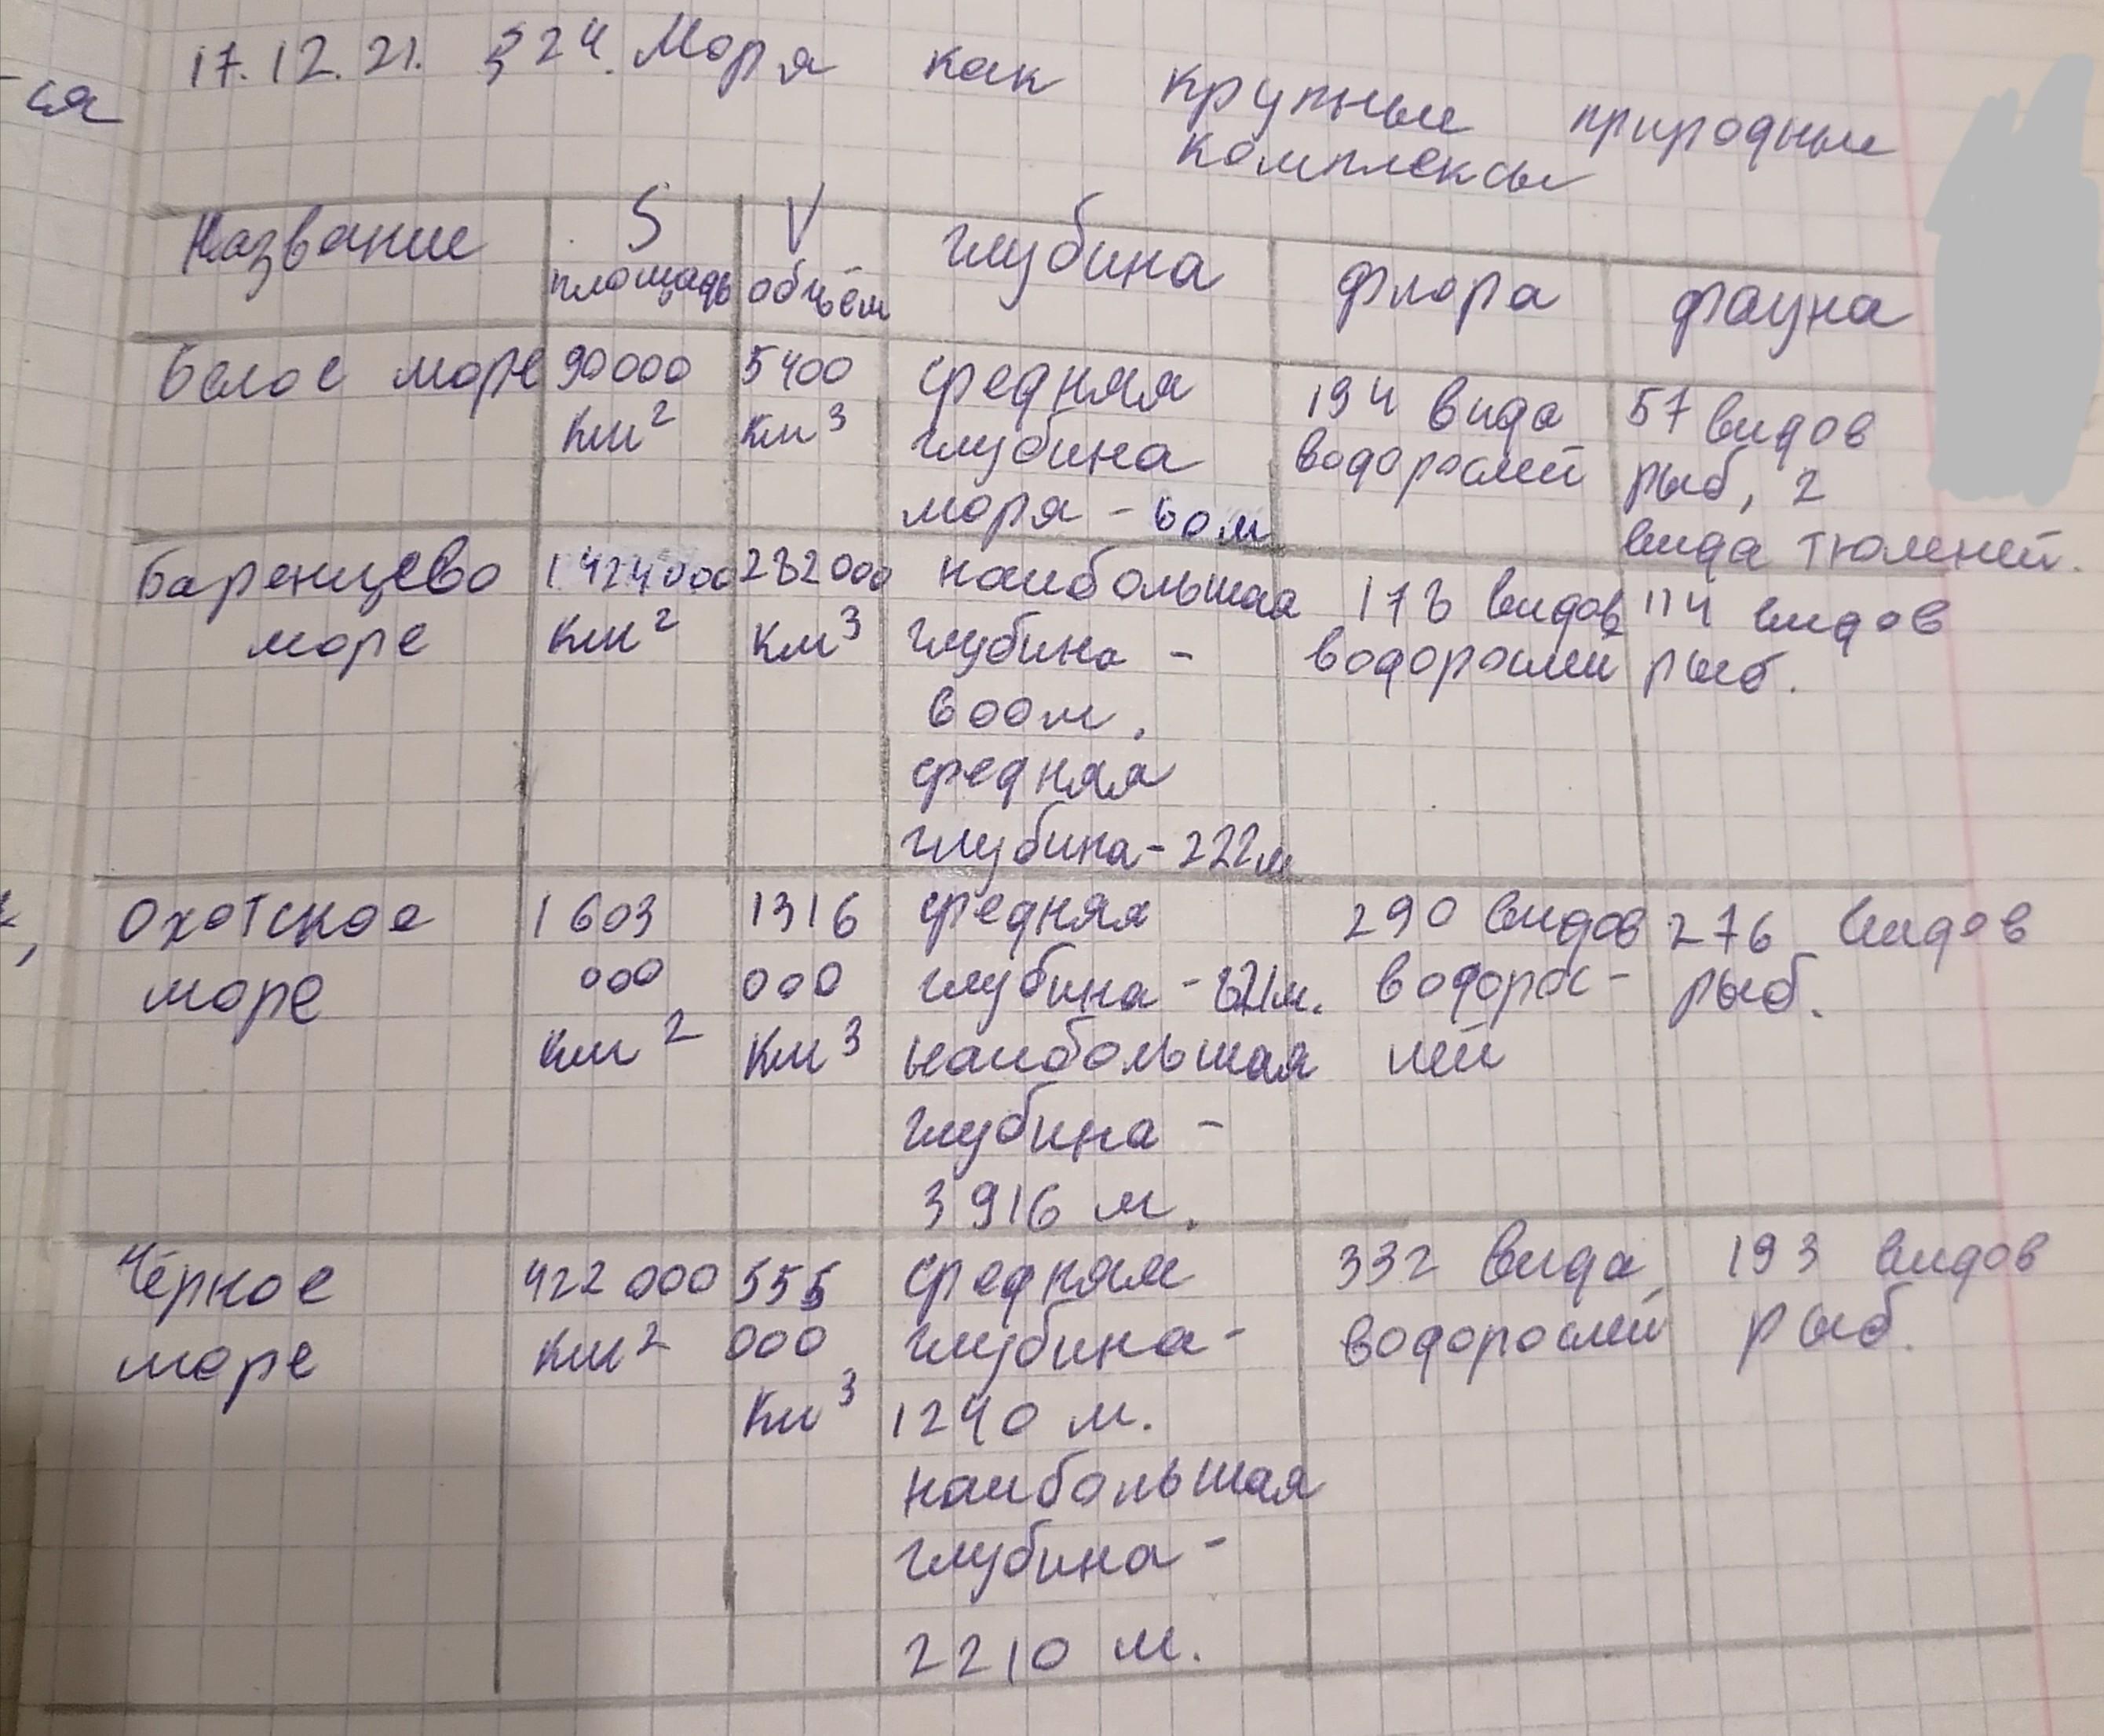 -ся
17.12.21. §24. Моря как крупные природные
комплексы
Название
S
площадь
V
объём
глубина
флора
фауна
Белое море
90000
км²
5400
км³
средняя
глубина
моря - 60м
194 вида
водорослей
57 видов
рыб, 2
вида тюленей.
Баренцево
море
1424000
км²
282000
км³
наибольшая
глубина -
600м.
средняя
глубина - 222м
173 видов
водорослей
114 видов
рыб.
Охотское
море
1 603
000
км²
1316
000
км³
средняя
глубина - 821м.
наибольшая
глубина -
3 916 м.
290 видов
водорос-
лей
276 видов
рыб.
Чёрное
море
422 000
км²
555
000
км³
средняя
глубина -
1240 м.
наибольшая
глубина -
2210 м.
332 вида
водорослей
193 видов
рыб.